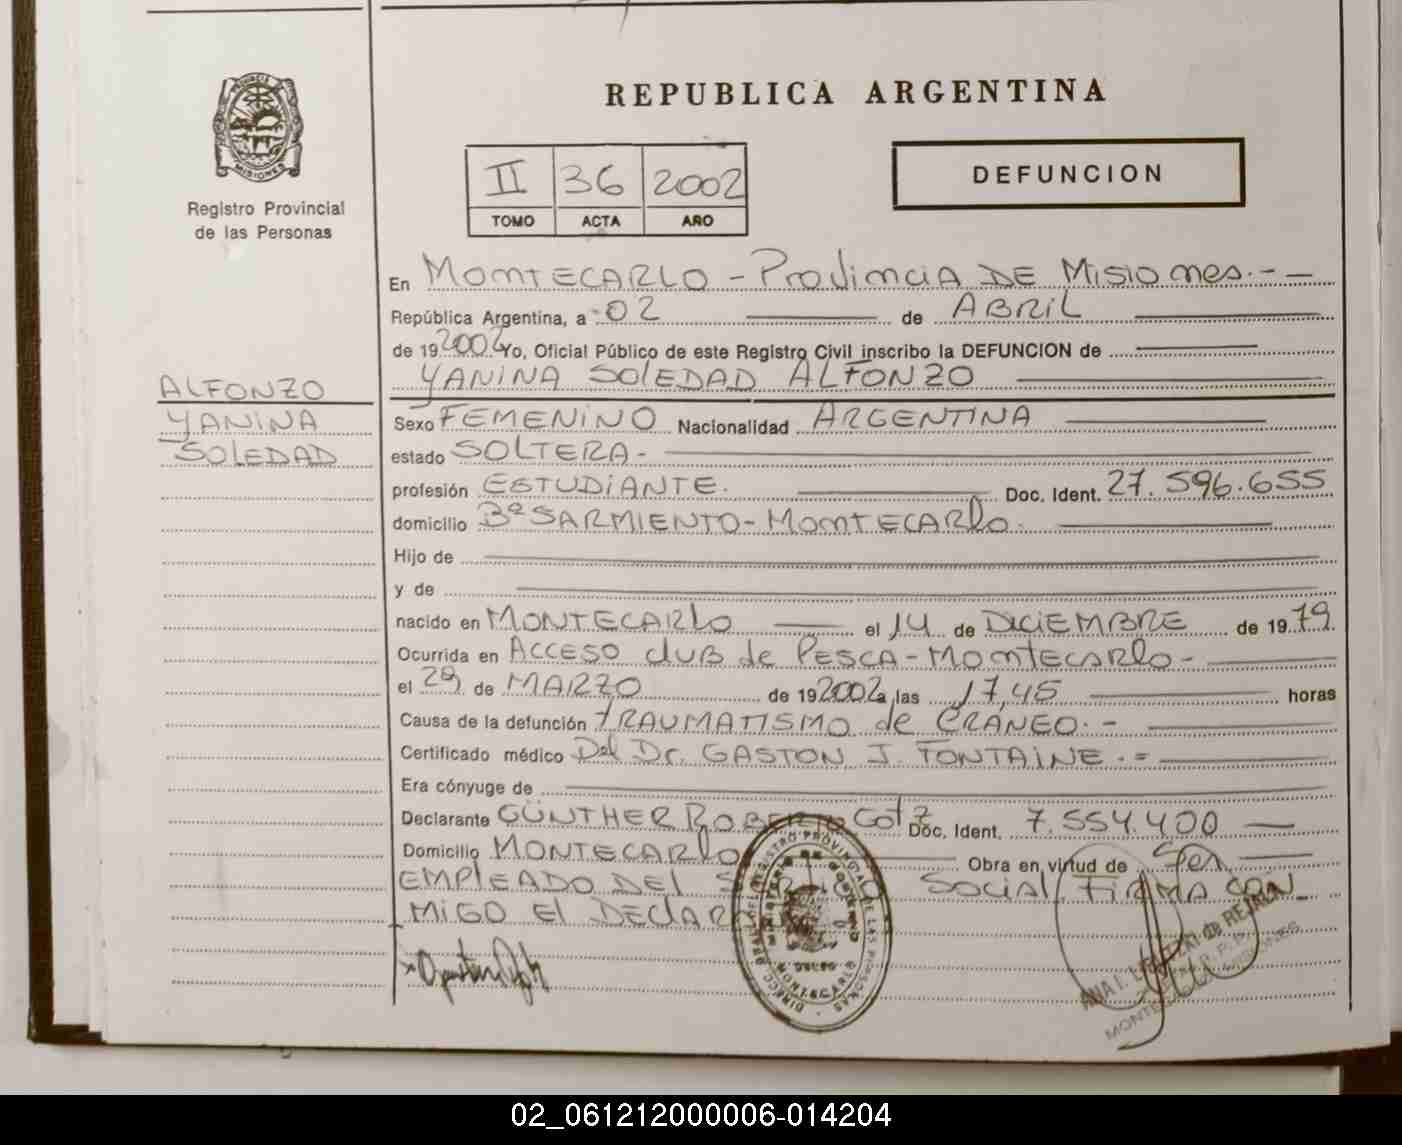 PROVINCIA
MISIONES
Registro Provincial
de las Personas
REPUBLICA ARGENTINA
II 36 2002
TOMO ACTA AÑO
DEFUNCION
En MONTECARLO - Provincia DE Misiones.- —
República Argentina, a 02 de ABRIL
de 19 2002 Yo, Oficial Público de este Registro Civil inscribo la DEFUNCION de
YANINA SOLEDAD ALFONZO
ALFONZO
YANINA
SOLEDAD
Sexo FEMENINO Nacionalidad ARGENTINA
estado SOLTERA.-
profesión ESTUDIANTE. Doc. Ident. 27.596.655
domicilio Bº SARMIENTO - MONTECARLO.
Hijo de
y de
nacido en MONTECARLO el 14 de DICIEMBRE de 19 79.
Ocurrida en ACCESO CLUB de PESCA - MONTECARLO -
el 29 de MARZO de 19 2002 a las 17,45 horas
Causa de la defunción TRAUMATISMO de CRANEO.-
Certificado médico Del Dr. GASTON J. FONTAINE.=
Era cónyuge de
Declarante GÜNTHER ROBERTO GOTZ Doc. Ident. 7.554.400 —
Domicilio MONTECARLO Obra en virtud de Ser
EMPLEADO DEL SOCIAL FIRMA CON
MIGO El DECLAR
DIRECC. GRAL. DEL REGISTRO PROVINCIAL DE LAS PERSONAS
MINISTERIO DE GOBIERNO
MONTECARLO
ANA I. REJALA
MONTECARLO MISIONES
02_061212000006-014204